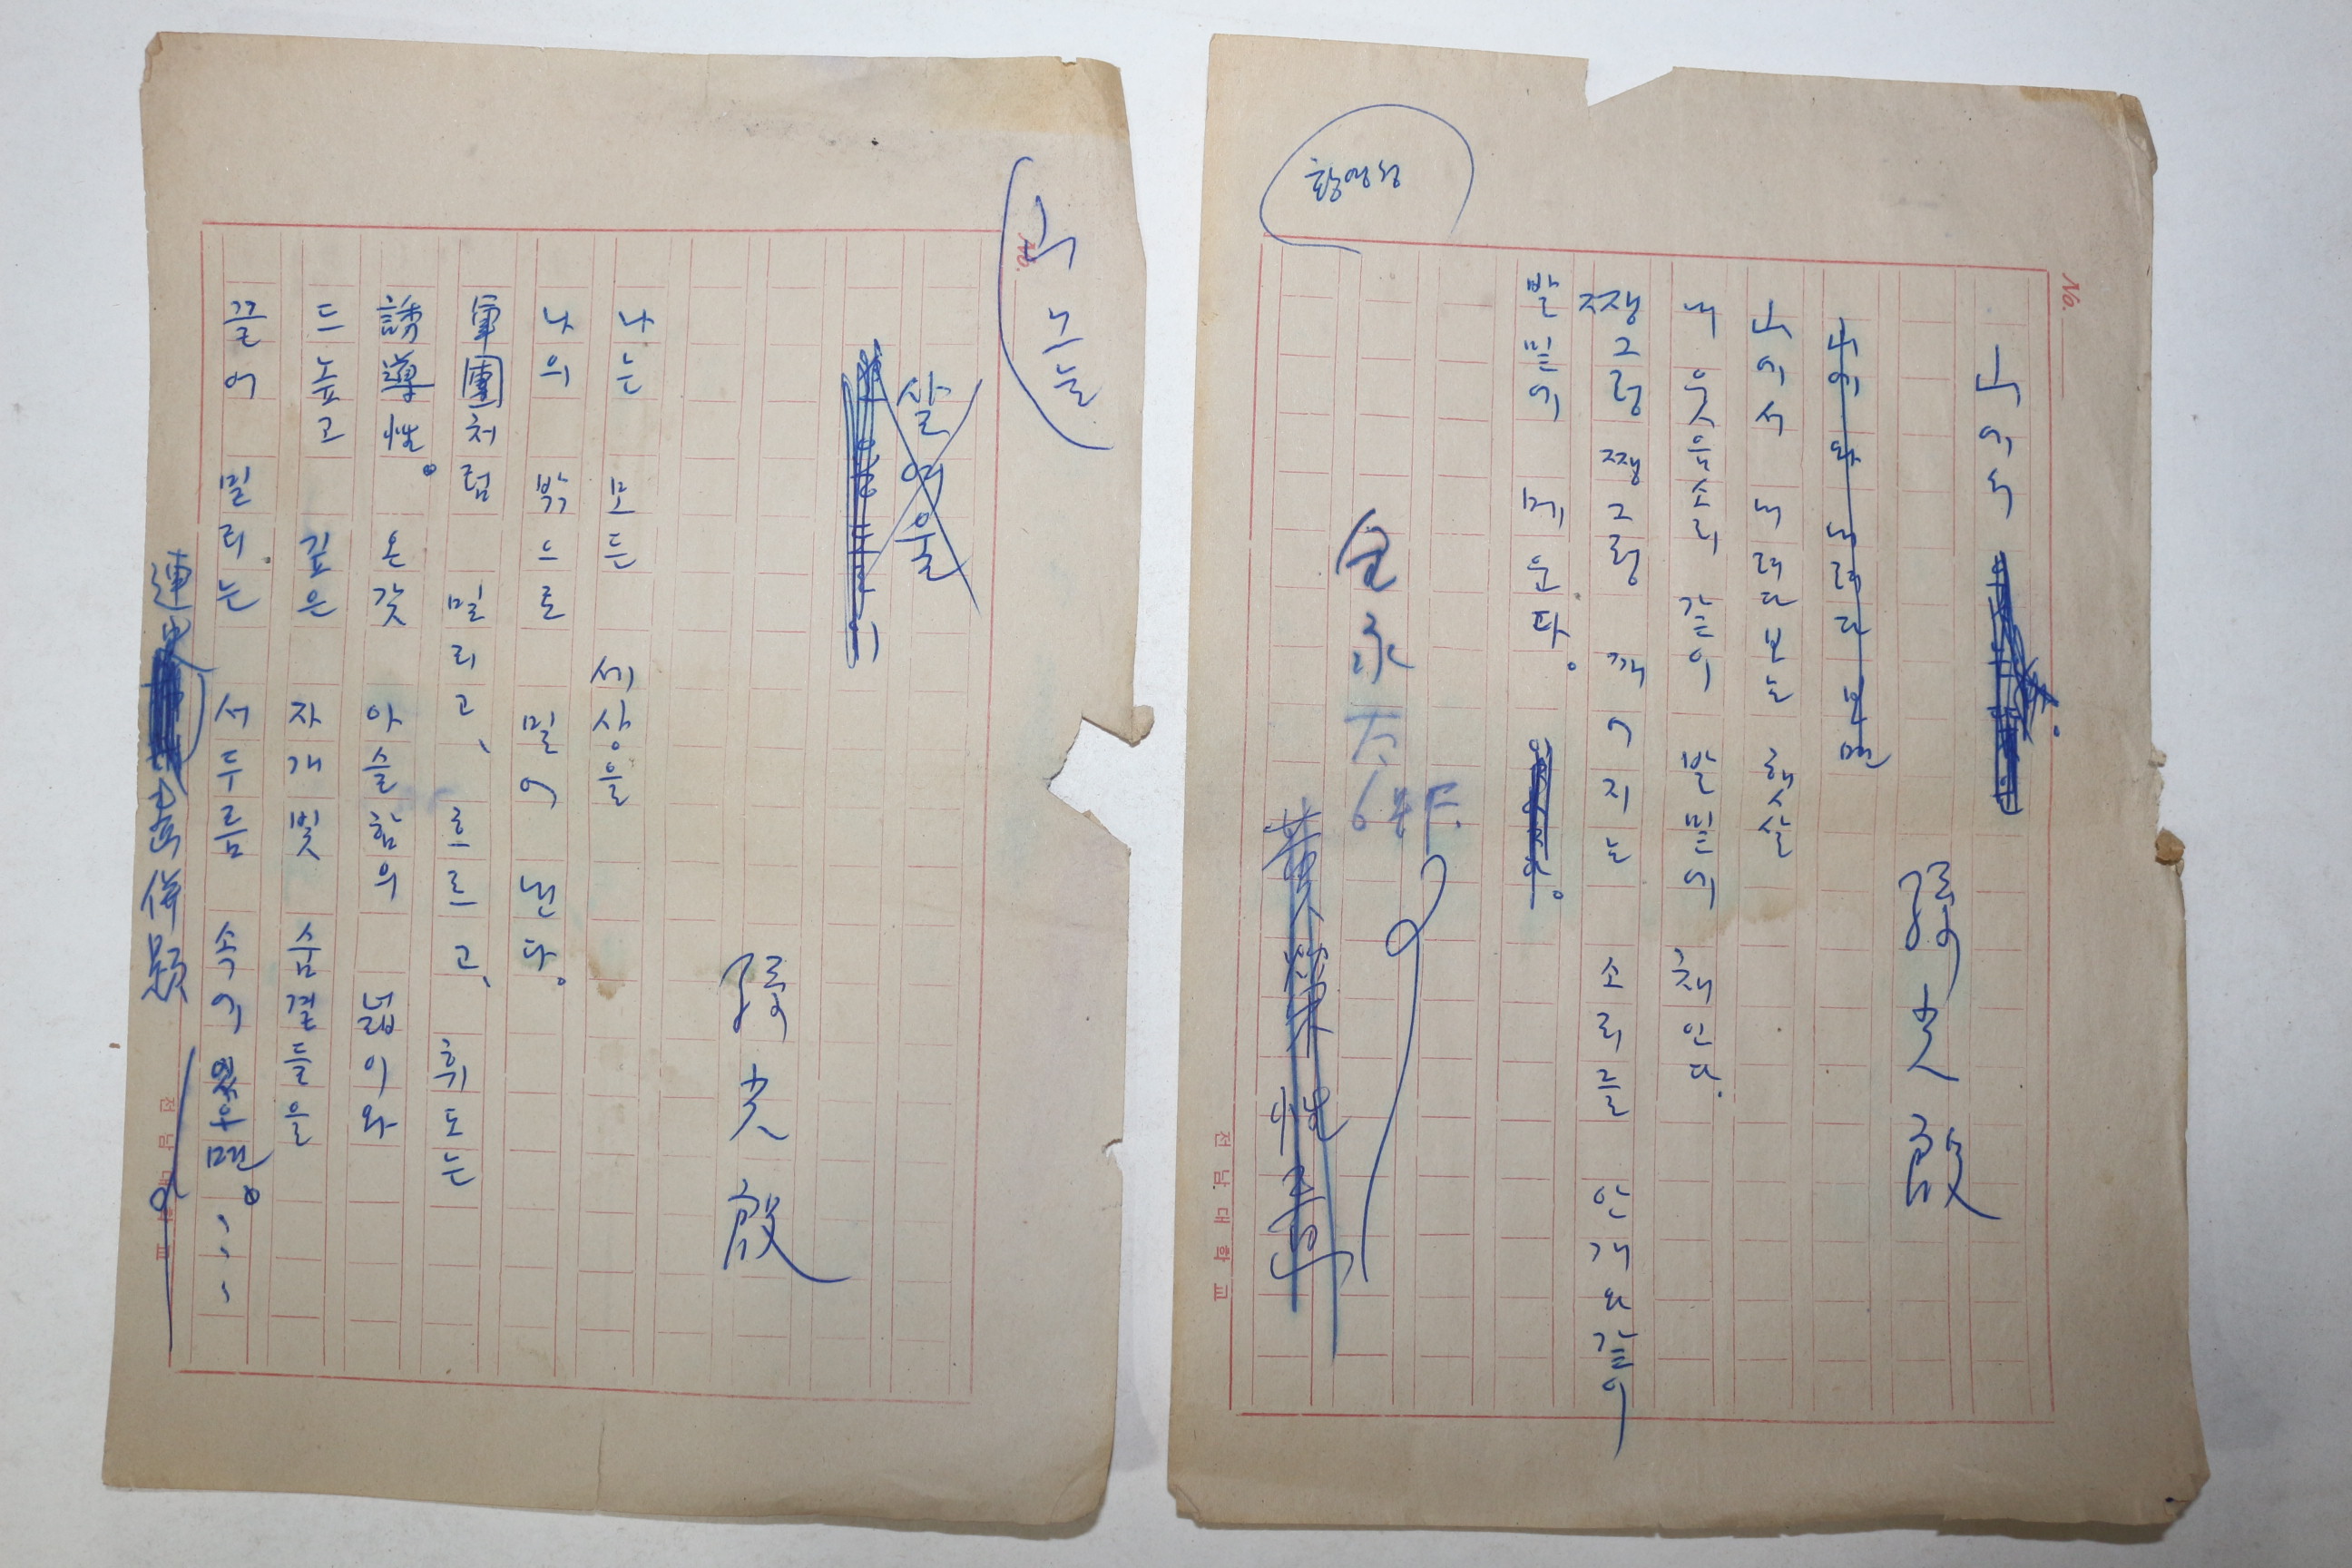 No.
山에서
孫光殷
山에와 내려다 보면
山에서 내려다보는 햇살
내 웃음소리 같이 발밑에 채인다.
쨍그렁 쨍그렁 깨어지는 소리를 안개와 같이
발밑에 메운다。
金永太
황영성
전남대학교
No.
山그늘
살여울
孫光殷
나는 모든 세상을
나의 밖으로 밀어 낸다。
軍團처럼 밀리고、 흐르고、 휘도는
誘導性。 온갖 아슬함의 넓이와
드높고 깊은 자개빛 숨결들을
끌어 밀리는 서두름
連
전남대학교